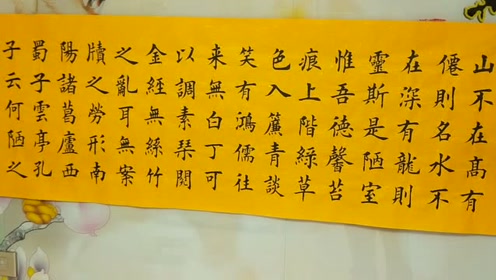 山不在高有
僊則名水不
在深有龍則
靈斯是陋室
惟吾德馨苔
痕上階緑草
色入簾青談
笑有鴻儒往
来無白丁可
以調素琴閱
金經無絲竹
之亂耳無案
牘之勞形南
陽諸葛廬西
蜀子雲亭孔
子云何陋之